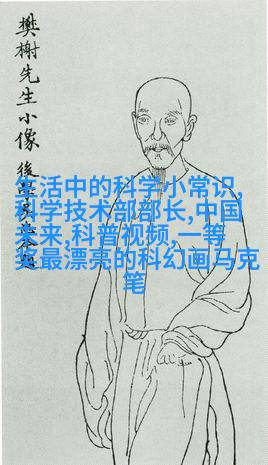 樊榭先生小像
後
生活中的科学小常识,
科学技术部部长,中国
未来,科普视频,一等
奖最漂亮的科幻画马克
笔